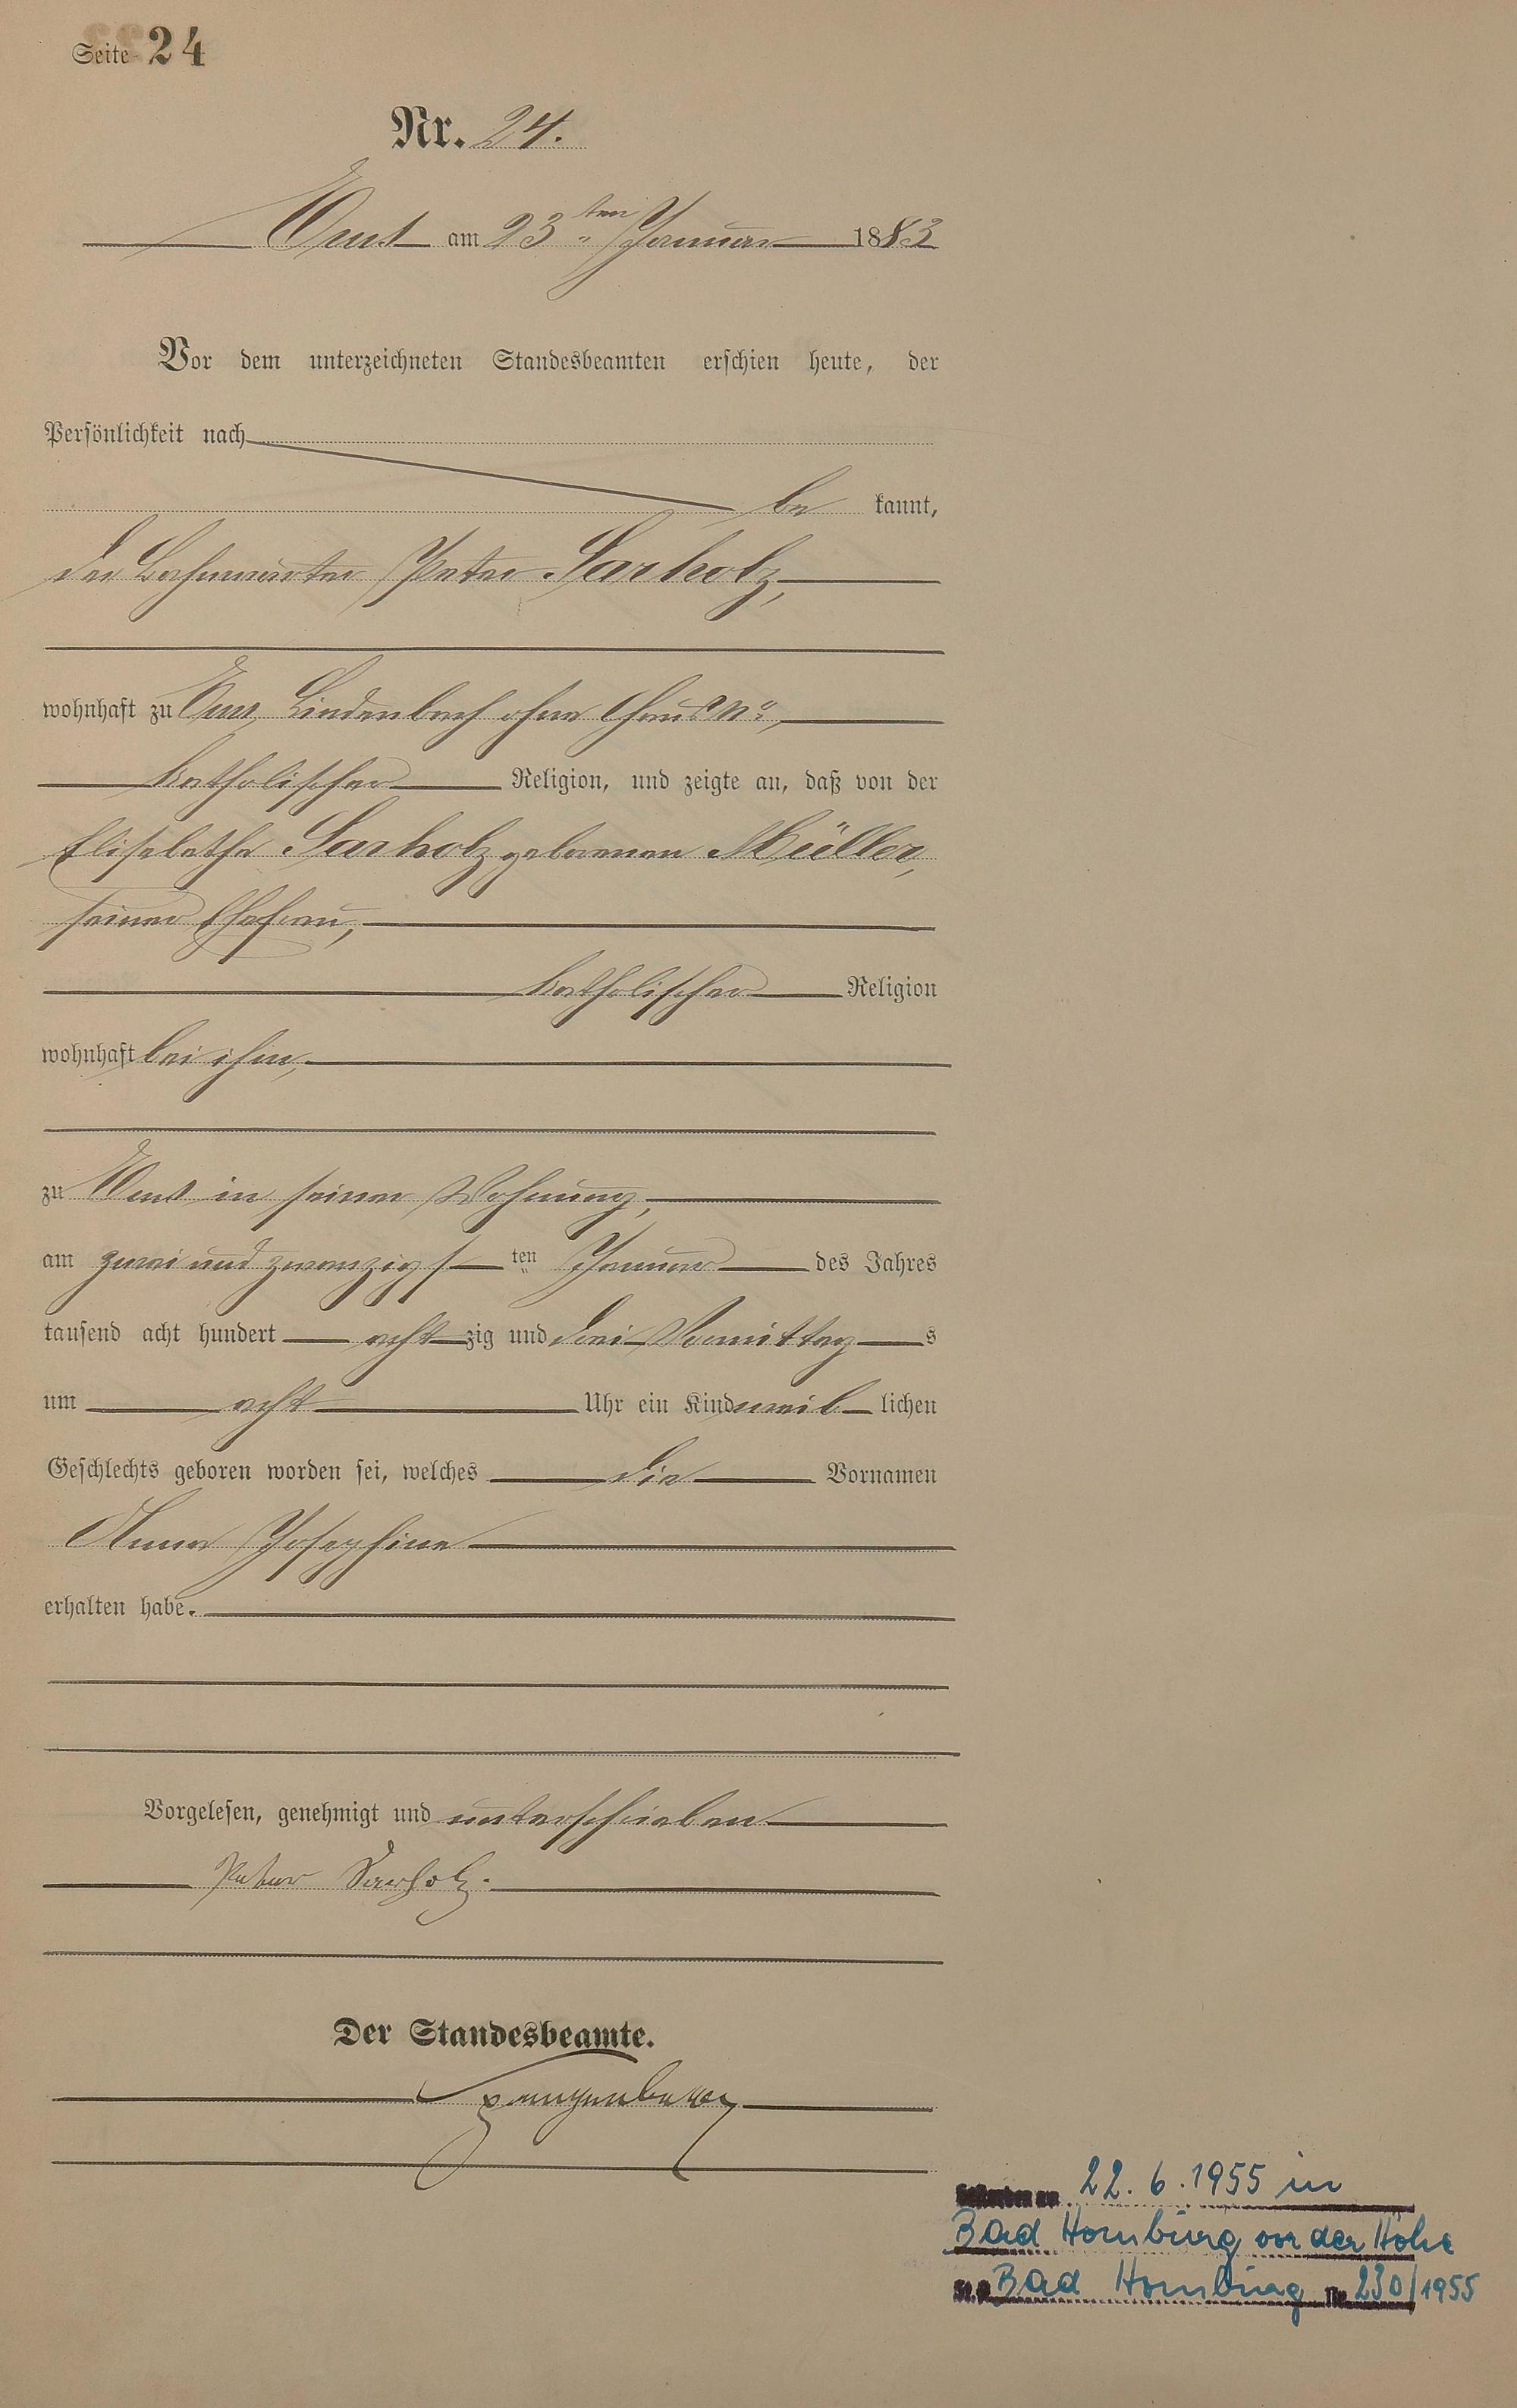 Seite 24
Nr. 24.
Ems am 23ten Januar 1883
Vor dem unterzeichneten Standesbeamten erschien heute, der
Persönlichkeit nach
be kannt,
der Bahnwärter Peter Sarholz,
wohnhaft zu Ems, Lindenbach ohne Haus No,
katholischer Religion, und zeigte an, daß von der
Elisabetha Sarholz geborenen Müller,
seiner Ehefrau,
katholischer Religion
wohnhaft bei ihm,
zu Ems in seiner Wohnung,
am zwei und zwanzigsten Januar des Jahres
tausend acht hundert achtzig und drei Vormittags
um acht Uhr ein Kind weiblichen
Geschlechts geboren worden sei, welches die Vornamen
Anna Josephine
erhalten habe.
Vorgelesen, genehmigt und unterschrieben
Peter Sarholz.
Der Standesbeamte.
Gestorben am 22.6.1955 in
Bad Homburg vor der Höhe
St.A. Bad Homburg Nr. 230/1955